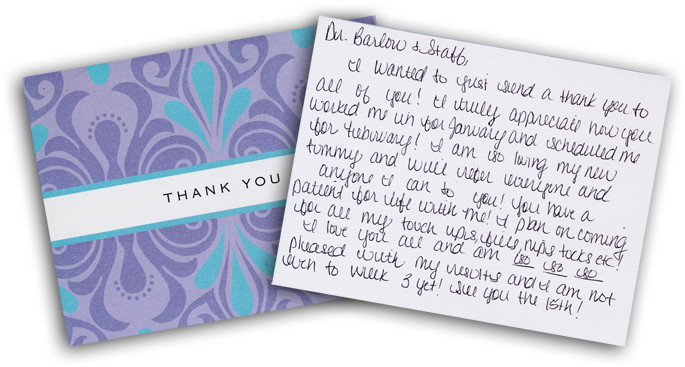 THANK YOU
Dr. Barlow & Staff,
I wanted to just send a thank you to
all of you! I truly appreciate how you
worked me in for January and scheduled me
for February! I am so loving my new
tummy and will refer everyone and
anyone I can to you! You have a
patient for life with me! I plan on coming
for all my touch ups, fills, nips tucks etc!
I love you all and am so so so
pleased with my results and I am not
even to week 3 yet! See you the 15th!